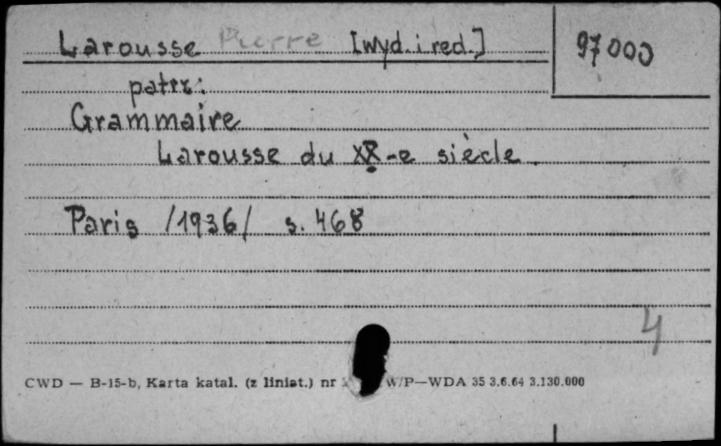 Larousse Pierre [wyd. i red.]
97000
patrz:
Grammaire
Larousse du XX-e siècle.
Paris /1936/ s. 468
4
CWD — B-15-b, Karta katal. (z liniat.) nr W/P—WDA 35 3.6.64 3.130.000